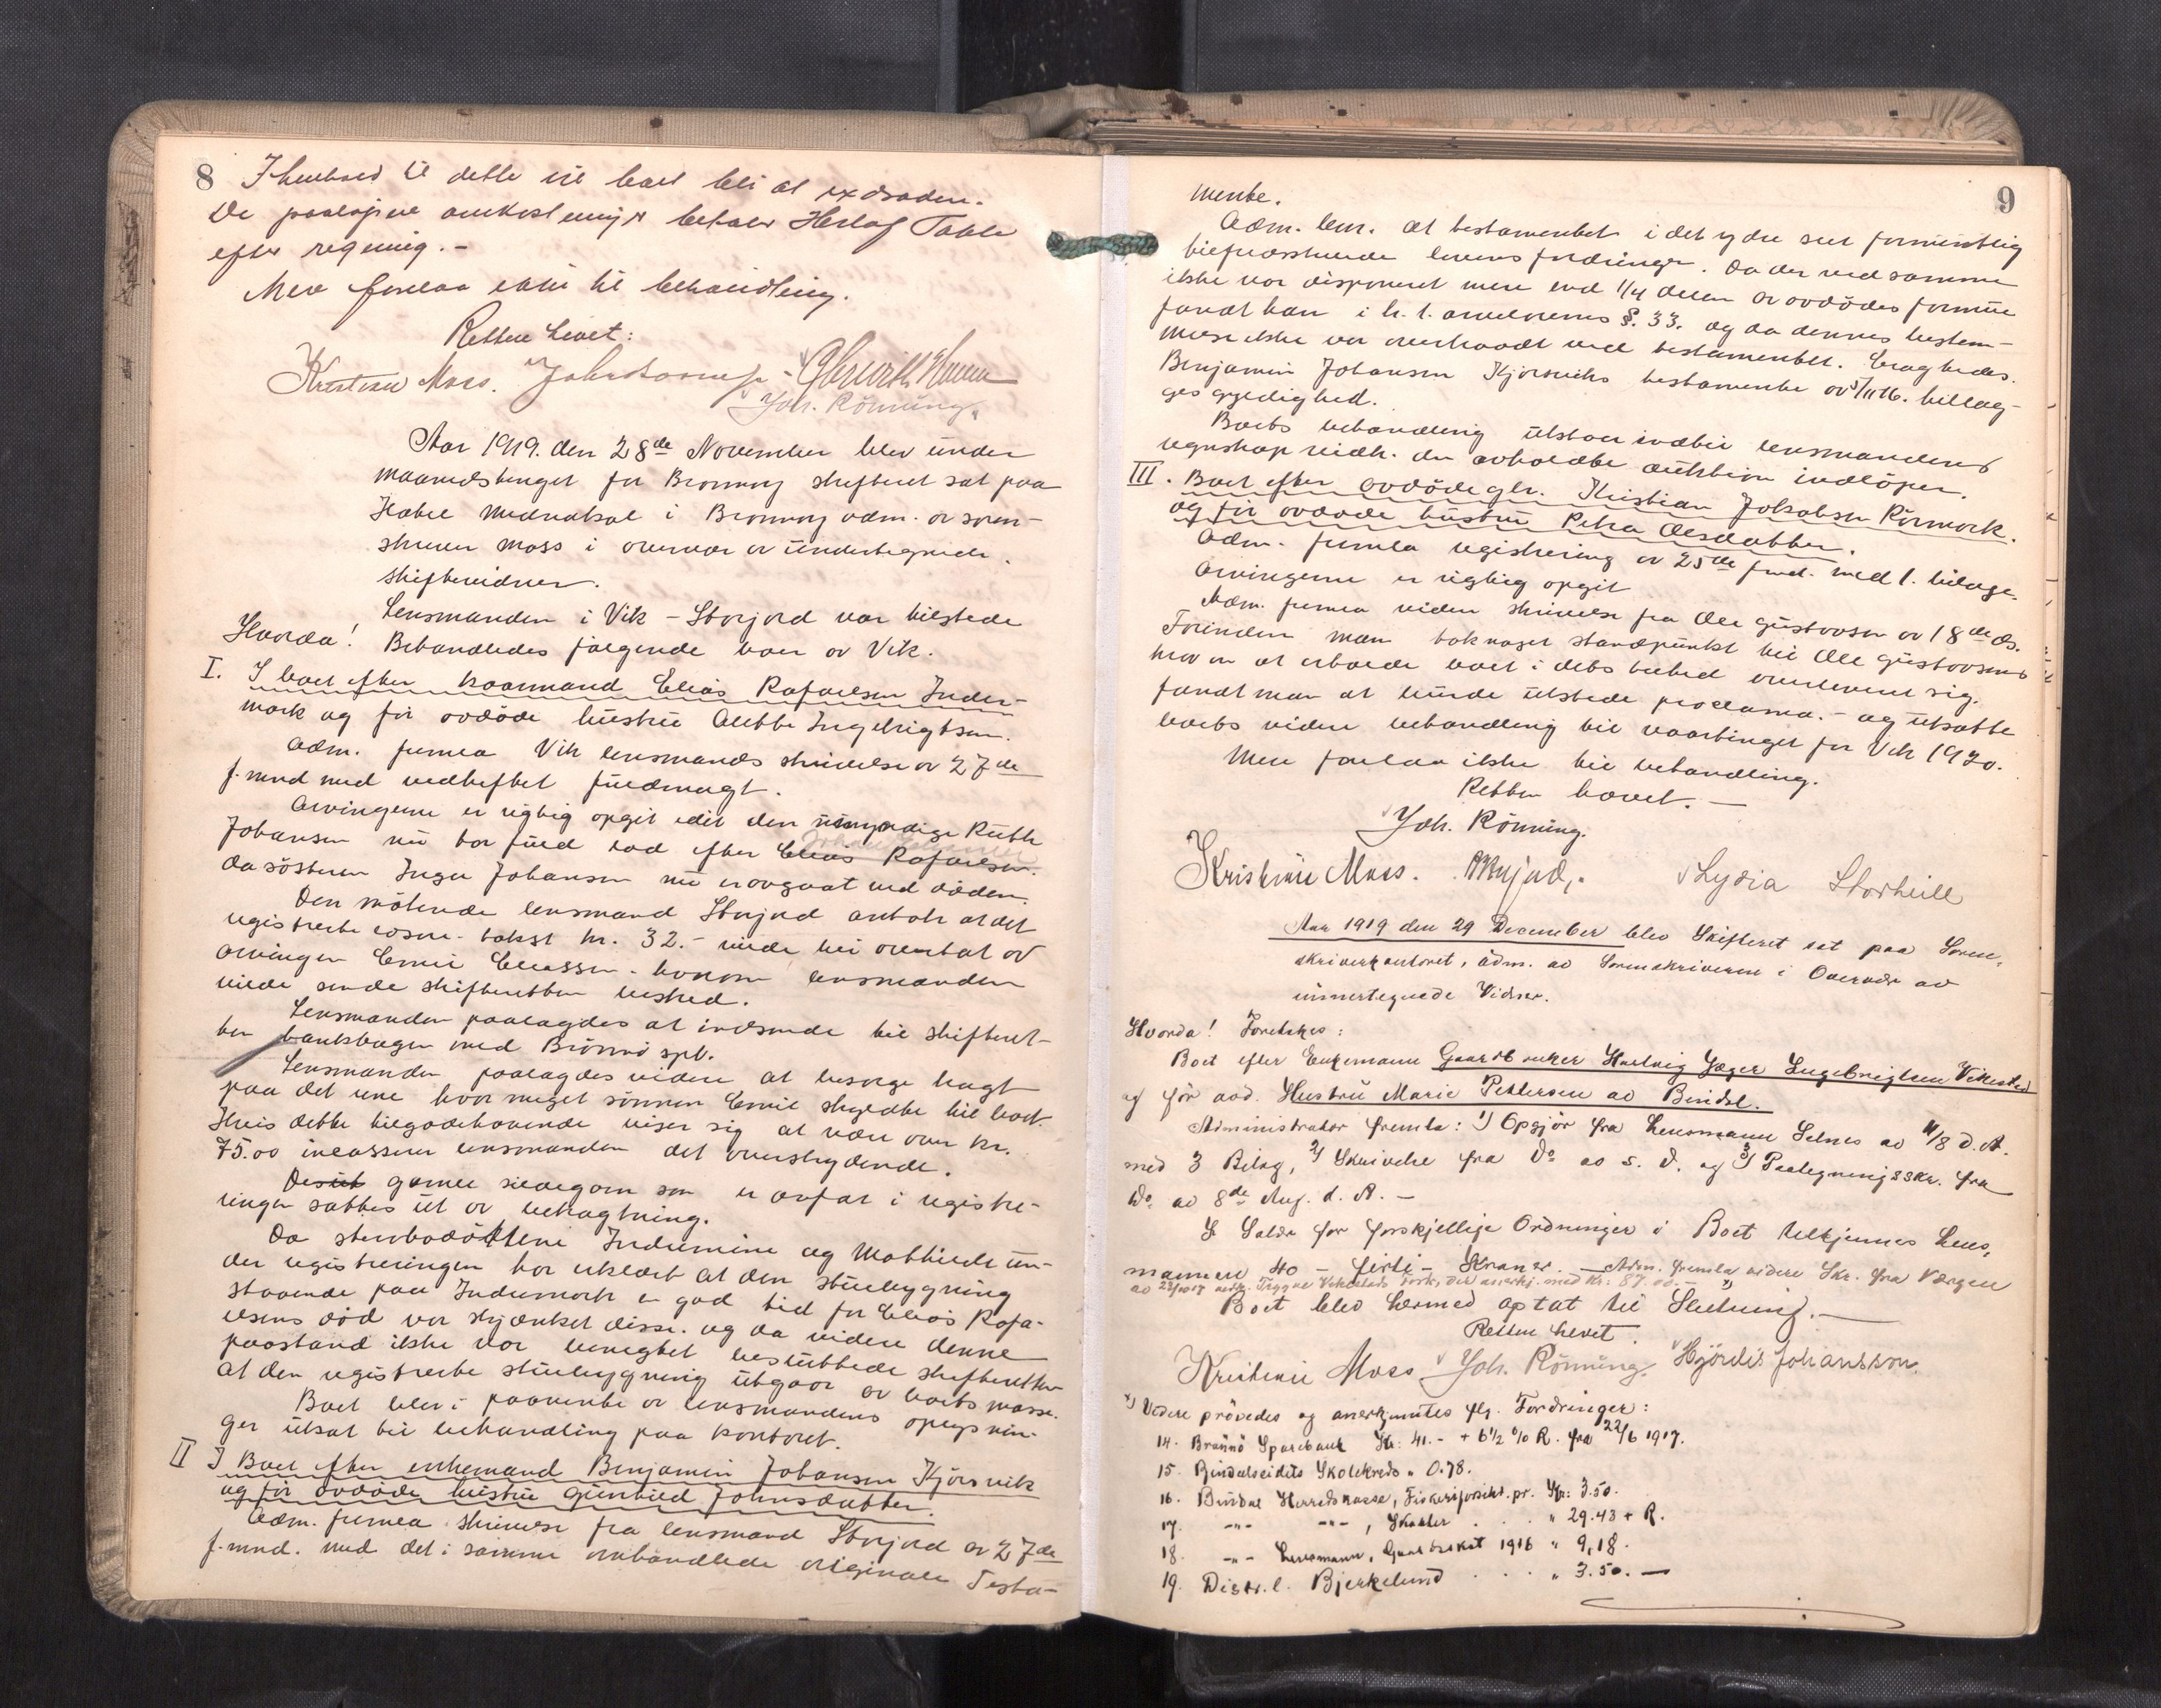 8
I henhold til dette vil boet bli at extradere.
De paaløpne omkostninger betaler Herlof
efter regning. -
Mere forelaa ikke til behandling.
Retten hevet:
Kristian Moss.
Joh. Rönning.
Aar 1919. den 28de November blev under
maanedstinget for Brønnøy skifteret sat paa
Hotel i Brønnøy adm. av soren-
skriver Moss i overvær av undertegnede
skiftevidner.
Lensmanden i Vik - Storjord var tilstede
Hvorda! Behandledes følgende boer av Vik.
I. I boet efter kaarmand Elias Rafaelsen Inder-
mark og før avdøde hustru Ingebrigtsen.
Adm. fremla Vik lensmands skrivelse av 27de
f. mnd med vedheftet fuldmagt.
Arvingerne er rigtig opgit idet den umyndige Ruth
Johansen nu har fuld lod efter Elias Rafaelsen.
da søsteren Inga Johansen nu er avgaat ved døden.
Den møtende lensmand Storjord antok at det
registrerte løsøre - takst kr. 32.- vilde bli overtat av
arvingen Emil Eliassen - hvorom lensmanden
vilde sende skifteretten besked.
Lensmanden paalagdes at indsende til skifteret-
ten bankbogen med Brønnø spb.
Lensmanden paalagdes videre at besørge bragt
paa det rene hvor meget sønnen Emil skyldte til boet.
Hvis dette tilgodehavende viser sig at være over kr.
75.00 incasserer lensmanden det overskydende.
gamle som er anført i registre-
ringen sattes ut av betragtning.
Da Indumine og Mathilde un-
der registreringen har erklært at den stuebygning
staaende paa Indermark en god tid før Elias Rafa-
elsens død var skjænket disse. og da videre denne
paastand ikke var benegtet besluttede skifteretten
at den registrerte stuebygning utgaar av boets masse.
Boet blev i paavente av lensmandens oplysnin-
ger utsat til behandling paa kontoret.
II I Boet efter enkemand Benjamin Johansen Kjørsvik
og før avdøde hustru Gunhild Johnsdatter.
Adm. fremla skrivelse fra lensmand Storjord av 27de
f. mnd. med det i samme omhandlede originale Testa-
9
mente.
Adm. bem. at testamentet i det ydre sees formentlig
tilfredsstillende lovens fordringer. Da der ved samme
ikke var disponeret mere end 1/4 delen av avdødes formue
fandt han i h. t. arvelovens §. 33. og da dennes bestem-
melse ikke var overtraadt ved testamentet. Eragtedes.
Benjamin Johansen Kjørsviks testamente av 3/11 16. tillæg-
ges gyldighed.
Boets behandling utstaar indtil lensmandens
regnskap vedk. den avholdte auktion indløper.
III. Boet efter avdøde gbr. Kristian Jakobsen Rörmark.
og før avdøde hustru Petra Olesdatter.
Adm. fremla registrering av 25de f.md. med 1. bilage.
Arvingerne er rigtig opgit
Adm. fremla videre skrivelse fra Ole Gustavsen av 18de ds.
Forinden man tok noget standpunkt til Ole Gustavsens
krav om at erholde boet i dets helhed overlevert sig.
fandt man at burde utstede proclama. - og utsatte
boets videre behandling til vaartinget for Vik 1920.
Mere forelaa ikke til behandling.
Retten hævet. -
Joh. Rönning.
Kristian Moss. Lydia Storheill
Aar 1919 den 29 December blev Skifteret sat paa Soren-
skriverkontoret, adm. av Sorenskriveren i Overvær av
undertegnede Vidner.
Hvorda! Foretokes:
Boet efter Enkemann Gaardbruker Hartvig Jæger Ingebrigtsen Vikestad
og før avd. Hustru Marie Pettersen av Bindal.
Administrator fremla: 1) Opgjør fra Lensmann Selnes av 11/8 d. A.
med 3 Bilag, 2) Skrivelse fra Do av s. d. og 3) Paategningsskr. fra
Do av 8de Aug. d. A. -
I Salær for forskjellige Ordninger i Boet tilkjennes Lens-
mannen 40 - firti - Kroner. - Adm. fremla videre Skr. fra Værgen
Trygve Vikestads anerkj. med Kr: 87.00.-
Boet blev hermed optat til Slutning. -
Retten hevet.
Kristian Moss Joh. Rönning. Hjördis Johansson.
x) Videre prövedes og anerkjentes flg. Fordringer:
14. Brønnö Sparebank Kr: 41.- + 6 1/2 % R. fra 22/6 1917.
15. Bindalseidets Skolekreds " 0.78.
16. Bindal Herredskasse, Fiskeriforsikr. pr. Kr: 3.50.
17. -"- -"-, Skatter . . . " 29.43 + R.
18. -"- Lensmann, 1916 " 9,18.
19. Distr.l. Bjerkelund . . . " 3.50. -